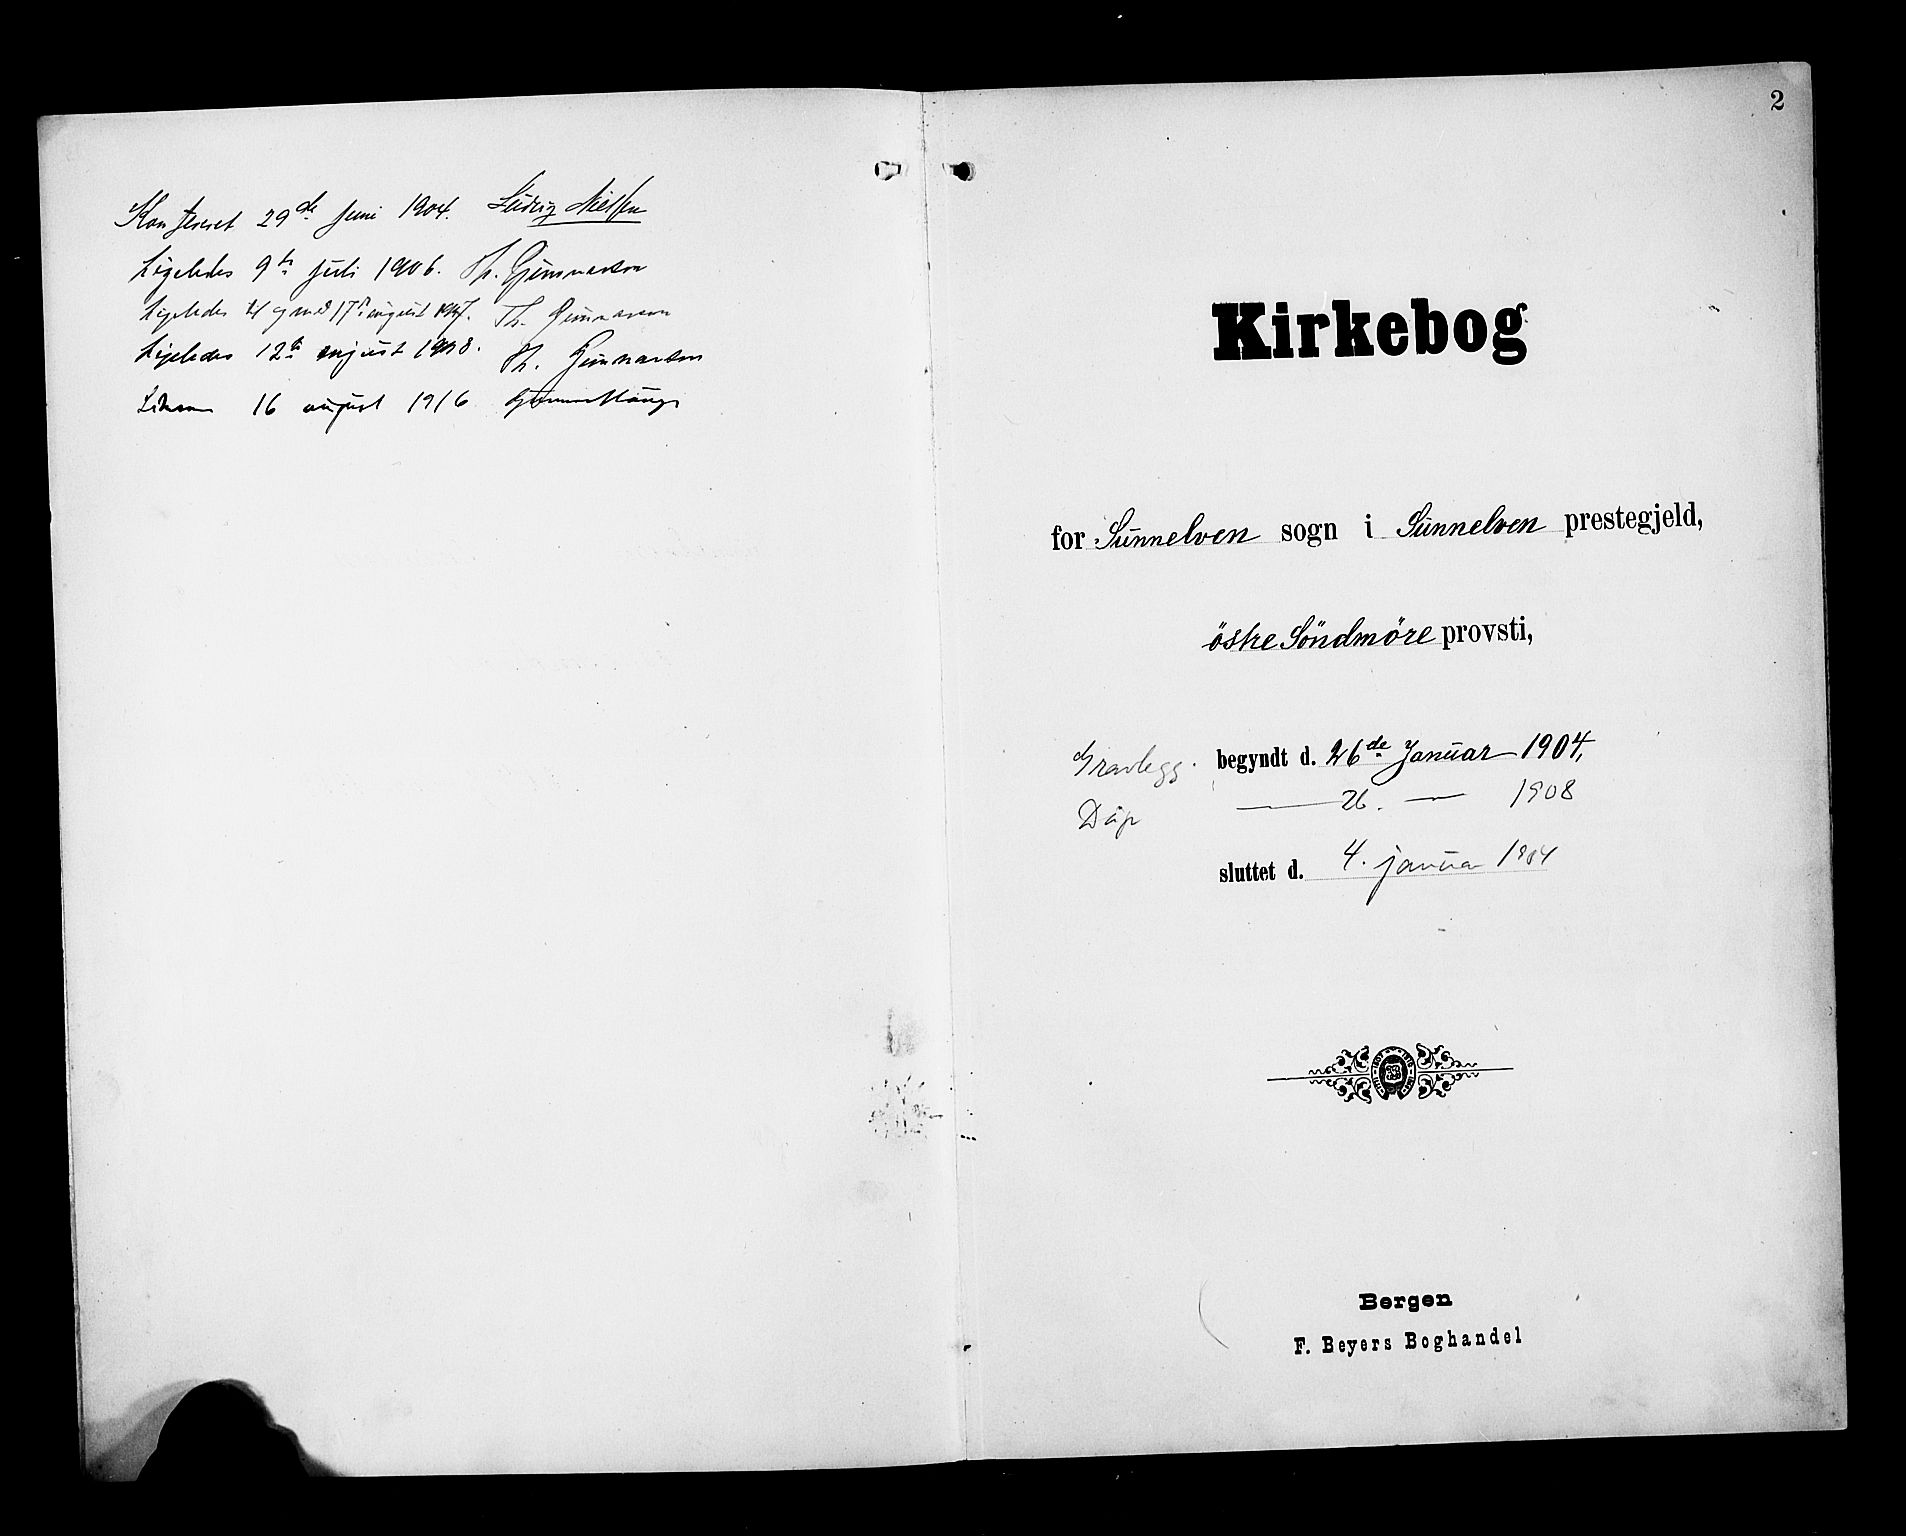 Konfereret 29de Juni 1904. Ludvig Nielsen
Ligeledes 9de juli 1906. Th. Gunnarson
Ligeledes 17 august 1907. Th. Gunnarson
Ligeledes 12te august 1908. Th. Gunnarson
16 august 1916
2
Kirkebog
for Sunnelven sogn i Sunnelven prestegjeld,
östre Söndmöre provsti,
Gravlegg. begyndt d. 26de Januar 1904,
Dåp — 26. — 1908
sluttet d. 4. janua
Bergen
F. Beyers Boghandel